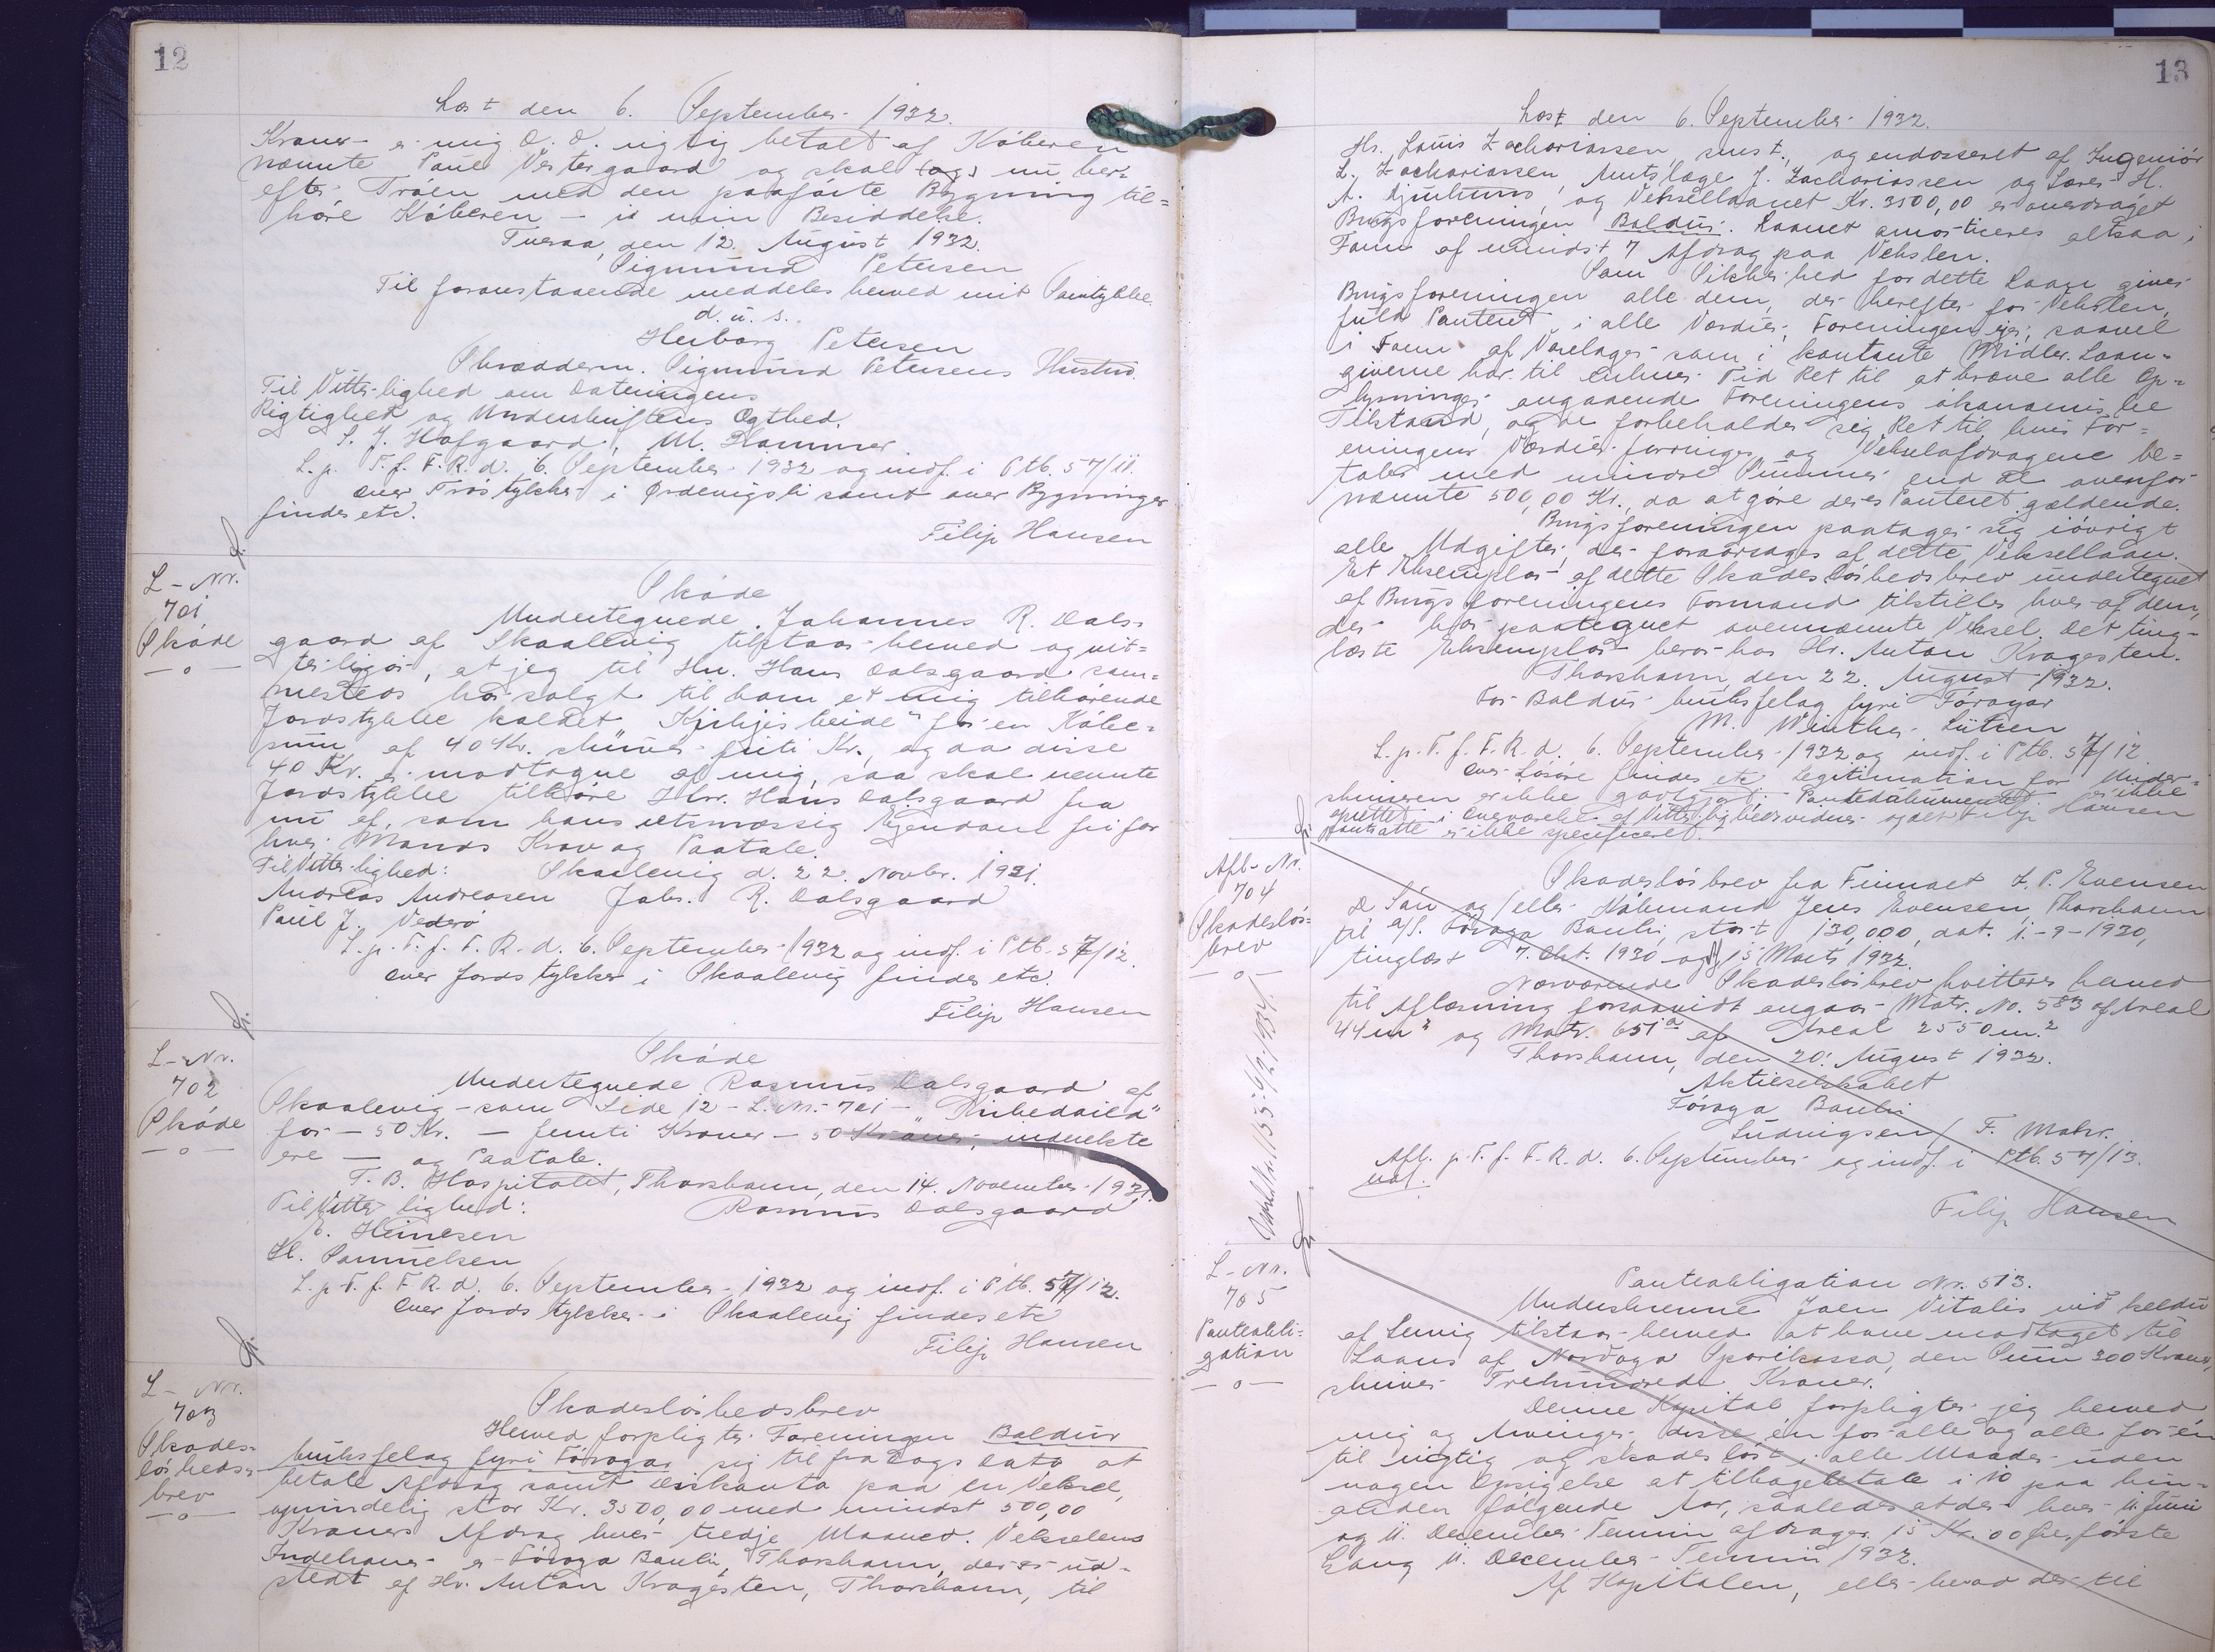 12
Læst den 6. September 1932.
Kroner er mig D. D. rigtig betalt af Køberen
nævnte Poul Vestergaard og skal (og) nu her-
efter Trøen med den paaførte Bygning til=
høre Køberen – i min Besiddelse.
Tveraa, den 12. August 1932.
Sigmund Petersen
Til foranstaaende meddeles herved mit Samtykke.
d. u. s.
Herborg Petersen
Skrædderm. Sigmund Petersens Hustru.
Til Vitterlighed om Dateringens
Rigtighed og Underskriftens Ægthed.
S. J. Hofgaard, M. Hammer
L. p. T. f. F. R. d. 6. September 1932 og indf. i Ptb. 57/11.
Over Trøstykker i Ørdevigsli samt over Bygninger
findes etc.
Filip Hansen
L-Nr.
701
Skøde
—o—
Skøde
Undertegnede Johannes R. Dals-
gaard af Skaalevig tilstaar herved og vit=
terligør, at jeg til Hr. Hans Dalsgaard sam=
mesteds har solgt til ham et mig tilhørende
Jordstykke kaldet "Kirkjisheide" for en Købe-
sum af 40 Kr. skriver firti Kr., og da disse
40 Kr. er modtagne af mig, saa skal nævnte
Jordstykke tilhøre Hr. Hans Dalsgaard fra
nu af, som hans retsmæssig Ejendom fri for
hver Mands Krav og Paatale.
Til Vitterlighed: Skaalevig d. 22. Novbr. 1931.
Andreas Andreasen Johs. R. Dalsgaard
Poul J. Vederø
L. p. T. f. F. R. d. 6. September 1932 og indf. i Ptb. 57/12.
Over Jordstykker i Skaalevig findes etc.
Filip Hansen
L-Nr.
702
Skøde
—o—
Skøde
Undertegnede Rasmus Dalsgaard af
Skaalevig – som Side 12 – L. Nr. 701 –
for – 50 Kr. – femti Kroner – 50 Kroner, indvekste
ere — og Paatale.
T. B. Hospitalet, Thorshavn, den 14. November 1931.
Til Vitterlighed: Rasmus Dalsgaard
E. Heinesen
H. Samuelsen
L. p. T. f. F. R. d. 6. September 1932 og indf. i Ptb. 57/12.
Over Jordstykker i Skaalevig findes etc
Filip Hansen
L-Nr.
703
Skades-
løsheds-
brev
—o—
Skadesløshedsbrev
Herved forpligter Foreningen Baldur
brúksfelag fyri Föroyar sig til fra Dags Dato at
betale Afdrag samt Diskonto paa en Veksel,
oprindelig stor Kr. 3500,00 med mindst 500,00
Kroners Afdrag hver tredje Maaned. Vekselens
Indehaver er Föroya Banki, Thorshavn, der er ud-
stedt af Hr. Anton Kragesten, Thorshavn, til
13
Læst den 6. September 1932.
Hr. Louis Zachariassen, smst., og endosseret af Ingeniør
L. Zachariassen, Amtslæge J. Zachariassen og Lærer H.
A. Djurhuus, og Veksellaanet Kr. 3500,00 er overdraget
Brugsforeningen Baldur. Laanet amortiseres altsaa i
Form af mindst 7 Afdrag paa Vekslen.
Som Sikkerhed for dette Laan giver
Brugsforeningen alle dem, der hæfter for Vekslen,
fuld Panteret i alle Værdier, Foreningen ejer, saavel
i Form af Varelager som i kontante Midler. Laan-
giverne har til enhver Tid Ret til at kræve alle Op=
lysninger angaaende Foreningens økonomiske
Tilstand, og de forbeholder sig Ret til hvis For=
eningens Værdier forringes og Vekselafdragene be=
tales med mindre Summer end de ovenfor
nævnte 500,00 Kr., da at gøre deres Panteret gældende.
Brugsforeningen paatager sig iøvrigt
alle Udgifter, der foraarsages af dette Veksellaan.
Et Eksemplar af dette Skadesløshedsbrev undertegnet
af Brugsforeningens Formand tilstilles hver af dem,
der har paategnet ovennævnte Veksel. Det ting-
læste Eksemplar beror hos Hr. Anton Kragesten.
Thorshavn, den 22. August 1932.
For Baldur brúksfelag fyri Föroyar
M. Winther Lützen
L. p. T. f. F. R. d. 6. September 1932 og indf. i Ptb. 57/12
Over Løsøre findes etc. Legitimation for Under-
skriveren er ikke godtgjort. Pantedokumentet er ikke
oprettet i Overværelse af Vitterlighedsvidner og det Filip Hansen
pantsatte er ikke specificeret.
Afl.-Nr.
704
Skadesløs=
brev
—o—
Skadesløsbrev fra Firmaet Z. P. Evensen
& Sön og/eller Købmand Jens Evensen, Thorshavn
til A/S. Föroya Banki, stort 130,000, dat. 1-9-1930,
tinglæst 7. Okt. 1930 og 15 Marts 1932.
Nærværende Skadesløsbrev kvitteres herved
til Aflæsning forsaavidt angaar Matr. No. 583 af Areal
44 m² og Matr. 651a af Areal 2550 m.²
Thorshavn, den 20. August 1932.
Aktieselskabet
Föroya Banki
Ludvigsen / F. Mohr.
Afl. p. T. f. F. R. d. 6. September og indf. i Ptb. 57/13.
udf.
Filip Hansen
L-Nr.
705
Panteobli=
gation
—o—
Panteobligation Nr. 513.
Underskrevne Joen Vitalis við Keldu
af Lervig tilstaar herved at have modtaget til
Laans af Nordoya Sparikassa, den Sum 300 Kroner,
skriver Trehundrede Kroner.
Denne Kapital forpligter jeg herved
mig og Arvinger, disse én for alle og alle for én
til rigtig og skadesløst i alle Maader uden
nogen Opsigelse at tilbagebetale i 10 paa hin-
anden følgende Aar, saaledes at der hver 11. Juni
og 11. December Termin afdrages 15 Kr. 00 Øre, første
Gang 11. December Termin 1932.
Af Kapitalen, eller hvad der til